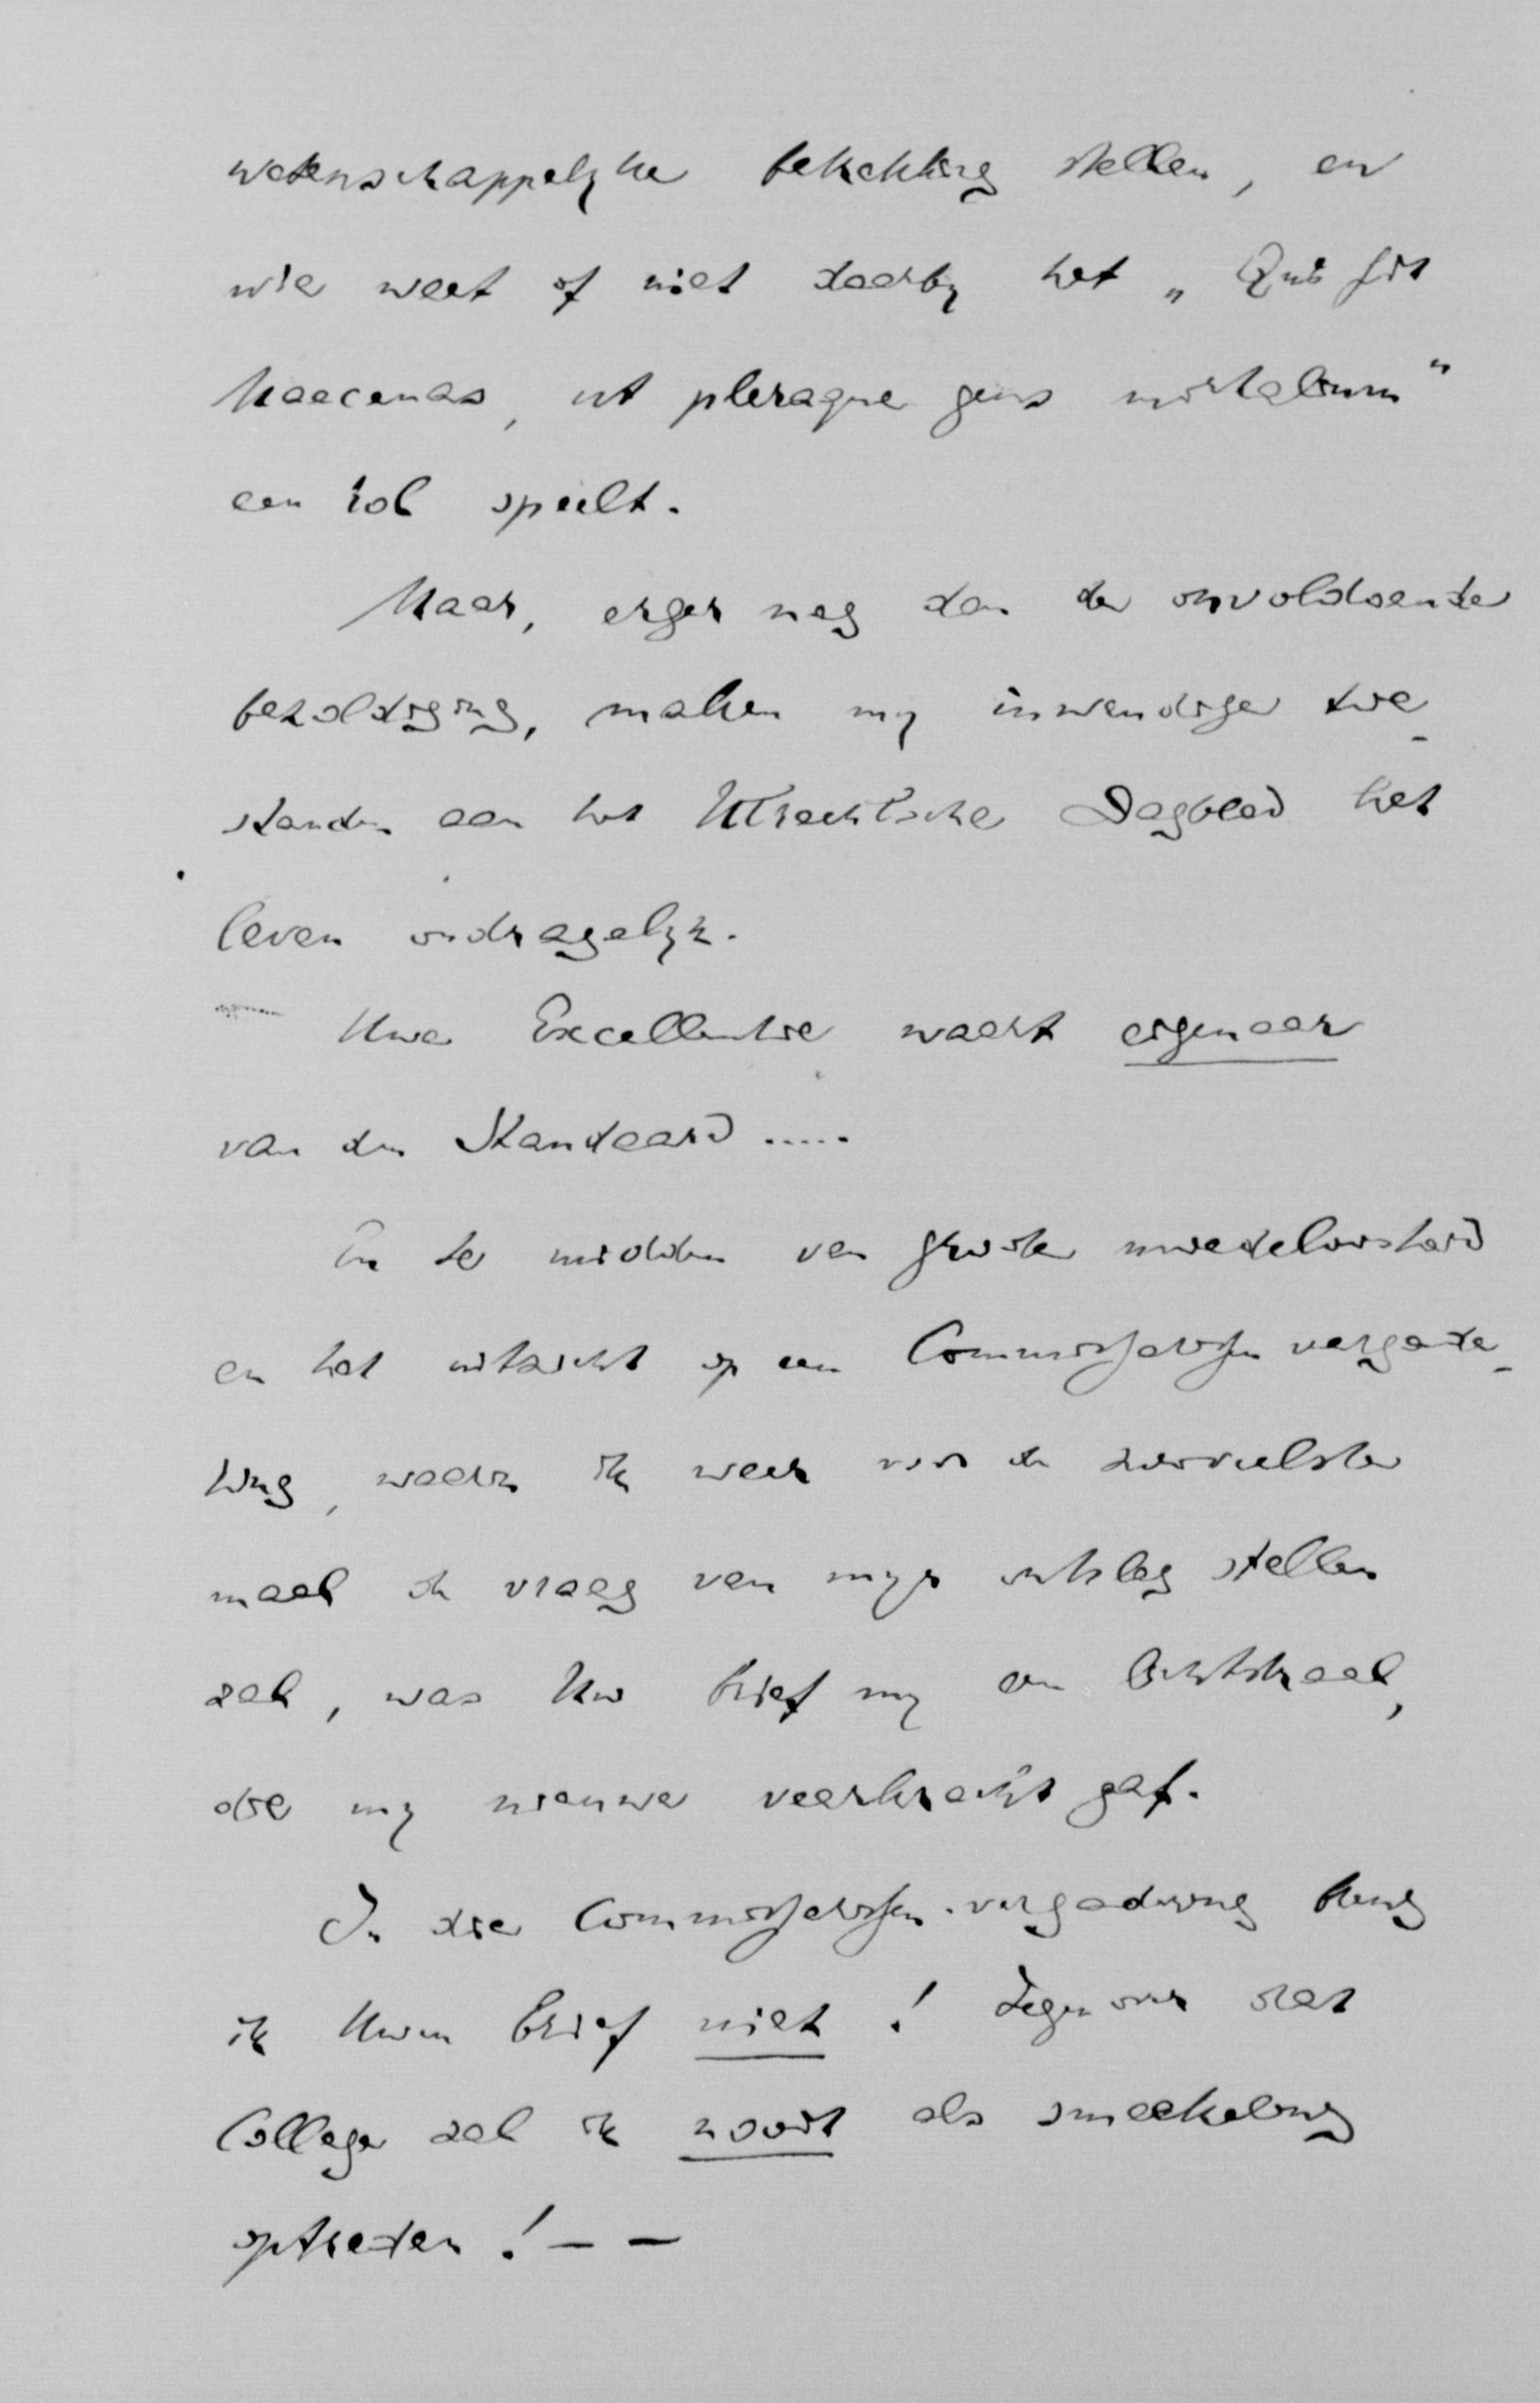 wetenschappelyke betrekking stellen, en
wie weet of niet daarby het „Qui fit
Maecenas, ut pleraque gens mortalium"
een rol speelt.
Maar, erger nog dan de onvoldoende
bezoldiging, maken my inwendige toe-
standen aan het Utrechtsche Dagblad het
leven ondragelyk.
Uwe Excellentie waart eigenaar
van den Standaard .....
En te midden van groote moedeloosheid
en het uitzicht op een Commissarissen vergade-
ring, waarin ik weer voor de zooveelste
maal de vraag van myn ontslag stellen
zal, was Uw brief my een lichtstraal,
die my nieuwe veerkracht gaf.
In die Commissarissen-vergadering breng
ik Uwen brief niet! Tegenover dat
College zal ik nooit als smeekeling
optreden! — —